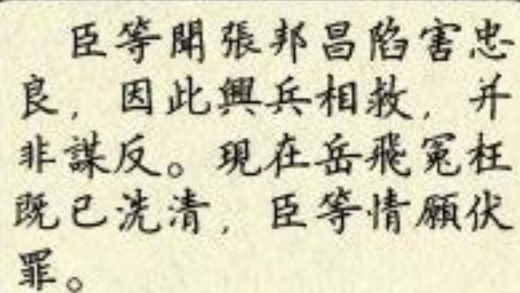 臣等聞張邦昌陷害忠
良，因此興兵相救，并
非謀反。現在岳飛冤枉
既已洗清，臣等情願伏
罪。